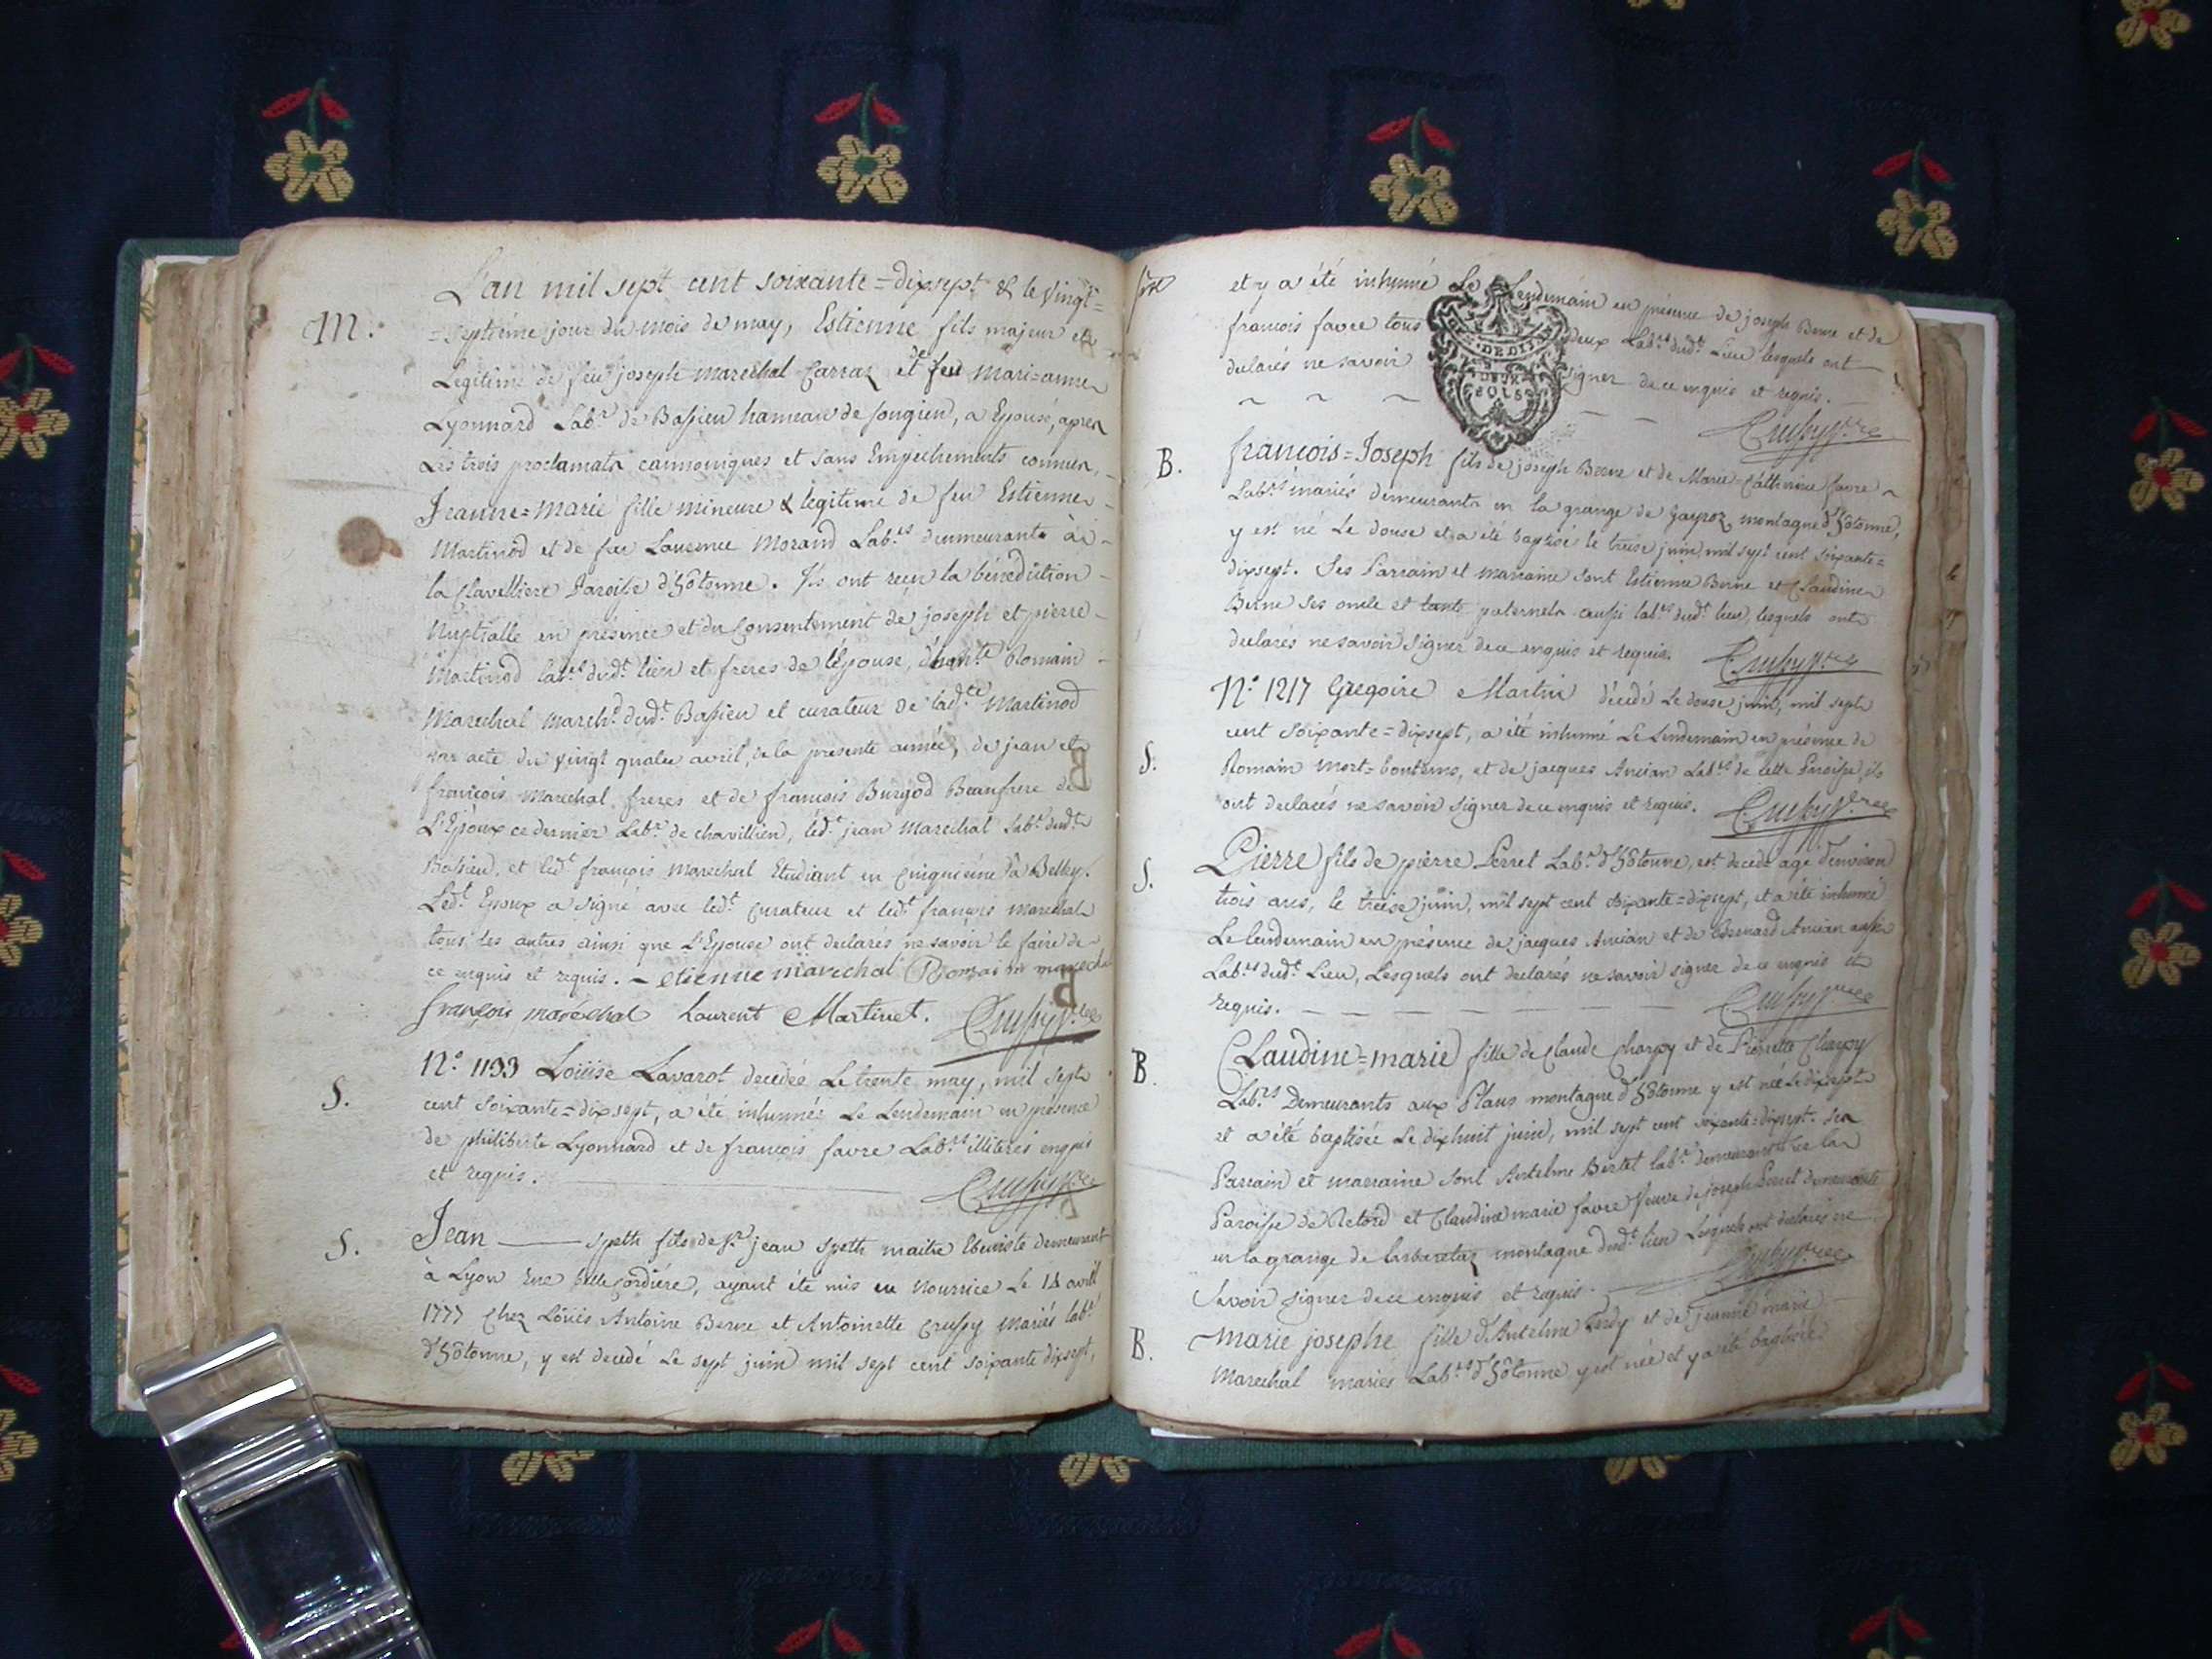 M.
L'an mil sept cent soixante=dixsept & le vingt=
=septiéme jour du mois de may, Estienne fils majeur et
Legitime de feu joseph marechal Carraz et de feu Marie=anne
Lyonnard Lab.r de Bassieu hameau de songieu, a Epousé, apres
Les trois proclamats cannoniques et sans Empechements connus,
Jeanne=marie fille mineure & legitime de feu Estienne
Martinod et de feu Laurence Morand Lab.rs demeurants à
la Clavelliere Paroisse d'hôtonne. Ils ont reçu la bénédiction
Nuptialle en présence et du Consentement de joseph et pierre
Martinod lab.rs dud.t lieu et freres de l'Epouse, d'hon.te Romain
Marechal march.d dud.t Bassieu et curateur de lad.te Martinod
par acte du vingt quatre avril, de la presente année, de jean et
françois Marechal freres et de francois Burgod Beaufrere de
L'Epoux ce dernier Lab.r de chavillieu, led.t jean Marechal Lab.r dud.t
Bassieu, et led.t françois Marechal Etudiant en Cinquiéme à Belley.
Led.t Epoux a signé avec led.t Curateur et led.t françois Marechal
tous les autres ainsi que L'Epouse ont declarés ne savoir le faire de
ce enquis et requis. - etienne marechal Romain marecha
françois maréchal Laurent Martinet. Crussy p.tre
S.
N.o 1133 Loüise Lavarot decedée Le trente may, mil sept
cent soixante=dixsept, a été inhumée Le Lendemain en présence
de philiberte Lyonnard et de francois favre Lab.rs illiterés enquis
et requis. Crussy p.tre
S.
Jean speth fils de S.r jean speth maitre Ebeniste demeurant
à Lyon Rue belle Cordiére, ayant été mis en Nourrice Le 14 avril
1777 Chez Loüis Antoine Berne et Antoinette Crussy mariés lab.rs
d'hôtonne, y est decedé Le sept juin mil sept cent soixante dixsept,
et y a été inhumé Le Lendemain en présence de joseph Berne et de
francois favre tous deux Lab.rs dud.t Lieu lesquels ont
declarés ne savoir signer de ce enquis et requis.
Crussy p.tre
B.
françois=Joseph fils de joseph Berne et de Marie=Catherine favre
Lab.rs mariés demeurants en la grange de montagne d'hôtonne,
y est né Le douse et a été baptisé le treise juin, mil sept cent soixante=
dixsept. Ses Parrain et marraine sont Estienne Berne et Claudine
Berne ses oncle et tante paternels aussi lab.rs dud.t lieu, lesquels ont
declarés ne savoir signer de ce enquis et requis. Crussy p.tre
S.
N.o 1217 Gregoire Martin décedé Le douse juin, mil sept
cent soixante=dixsept, a été inhumé Le Lendemain en présence de
Romain Mort=bontems, et de jacques Ancian Lab.rs de cette Paroisse, ils
ont declarés ne savoir signer de ce enquis et requis. Crussy p.tre
S.
Pierre fils de pierre Perret Lab.r d'hôtonne, est decedé agé d'environ
trois ans, le treise juin, mil sept cent soixante=dixsept, et a été inhumé
Le lendemain en présence de jacques Ancian et de Bernard Ancian aussi
Lab.rs dud.t Lieu, Lesquels ont declarés ne savoir signer de ce enquis et
requis. Crussy p.tre
B.
Claudine=marie fille de Claude Charpy et de Pierrette Charpy
Lab.rs Demeurants aux Plans montagne d'hôtonne y est née Le dixsept
et a été baptisée Le dixhuit juin, mil sept cent soixante=dixsept. Ses
Parrain et marraine sont Antelme Bertet lab.r demeurant
Paroisse de Retord et Claudine marie favre Veuve de joseph Perret demeurante
en la grange de montagne dud.t lieu Lesquels ont declarés ne
Savoir signer de ce enquis et requis. Crussy p.tre
B.
Marie josephe fille d'Antelme et de jeanne marie
Marechal mariés Lab.rs d'hôtonne y est née et y a été baptisée